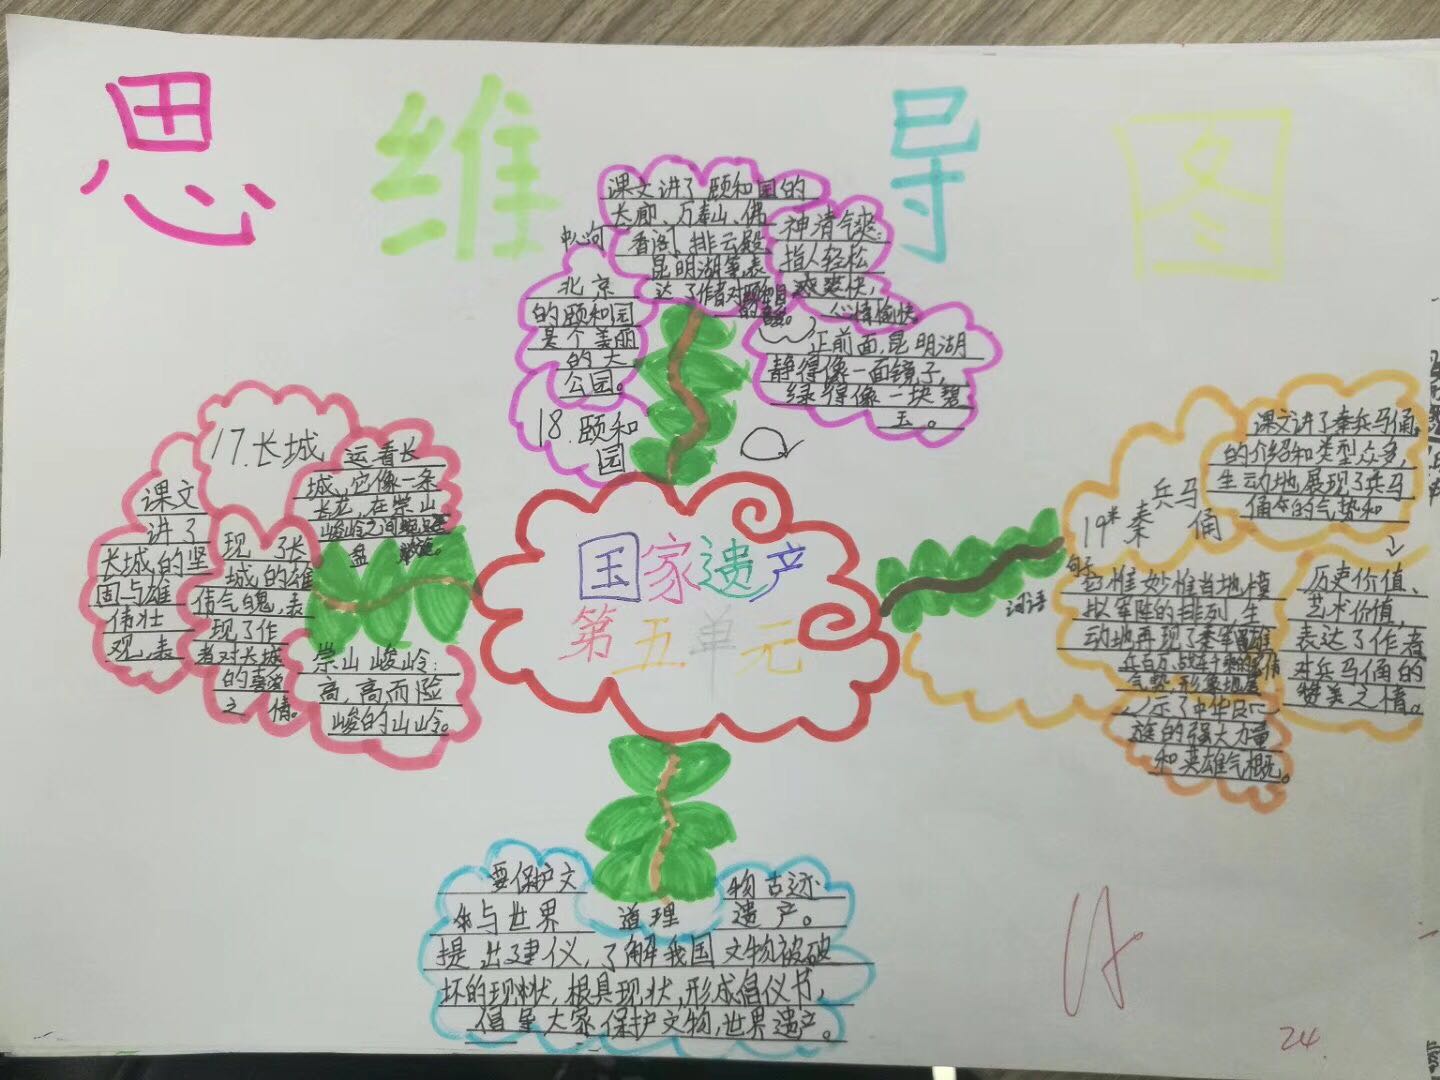 思维导图
国家遗产
第五单元
17.长城
课文
讲了
长城的坚
固与雄
伟壮
观,表
现了长
城的雄
伟气魄,表
现了作
者对长城
的喜爱
之情。
远看长
城,它像一条
长龙,在崇山
峻岭之间蜿蜒
盘
崇山峻岭:
高,高而险
峻的山岭。
18.颐和
园
中心句
北京
的颐和园
是个美丽
的大
公园。
课文讲了颐和园的
长廊、万寿山、佛
香阁、排云殿、
昆明湖等,表
达了作者对颐和园
神清气爽:
指人轻松
爽快,
心情愉快。
正前面,昆明湖
静得像一面镜子,
绿得像一块碧
玉。
19*秦兵马
俑
课文讲了秦兵马俑
的介绍和类型众多,
生动地展现了兵马
俑的气势和
历史价值、
艺术价值,
表达了作者
对兵马俑的
赞美之情。
句子
词语
惟妙惟肖地模
拟军阵的排列,生
动地再现了秦军雄
兵百万,战车千乘的
气势,形象地显
示了中华民
族的强大力量
和英雄气概。
道理
要保护文物古迹
与世界遗产。
提出建议,了解我国文物被破
坏的现状,根具现状,形成倡仪书,
倡呈大家保护文物,世界遗产。
24.